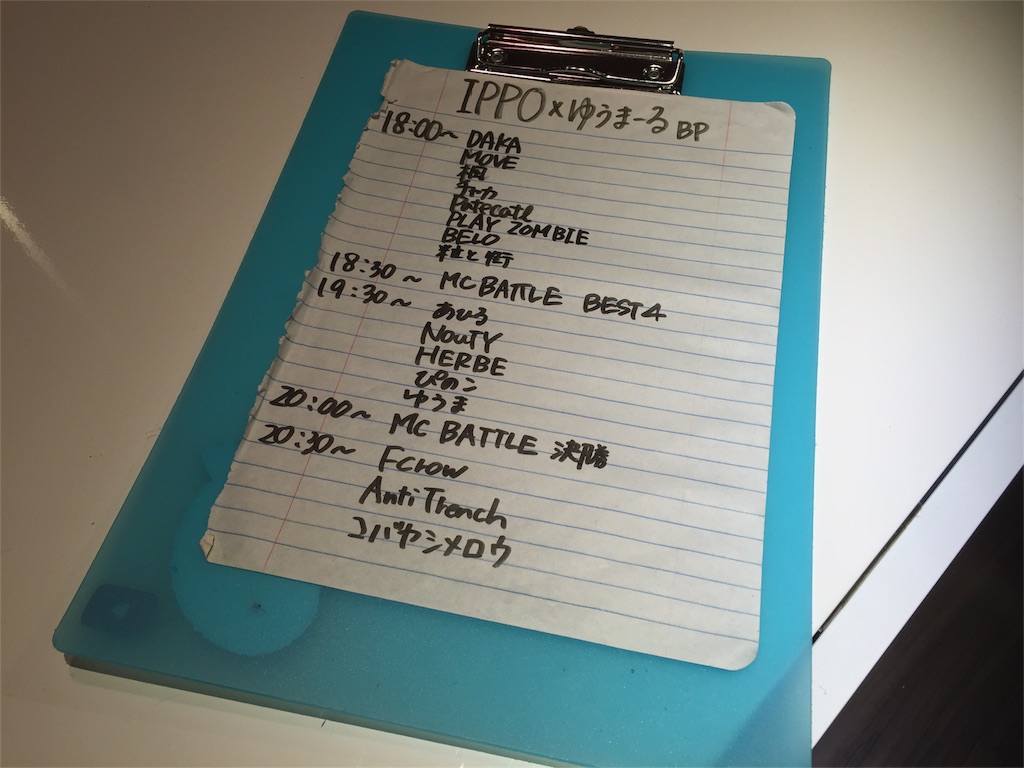 IPPO×ゆうまーる BP
18:00~ DAKA
MOVE
桐
チャカ
Patecatl
PLAY ZOMBIE
BELO
粒と街
18:30~ MC BATTLE BEST4
19:30~ あひる
NouTY
HERBE
ぴのこ
ゆうま
20:00~ MC BATTLE 決勝
20:30~ Fcrow
AntiTrench
コバヤシメロウ